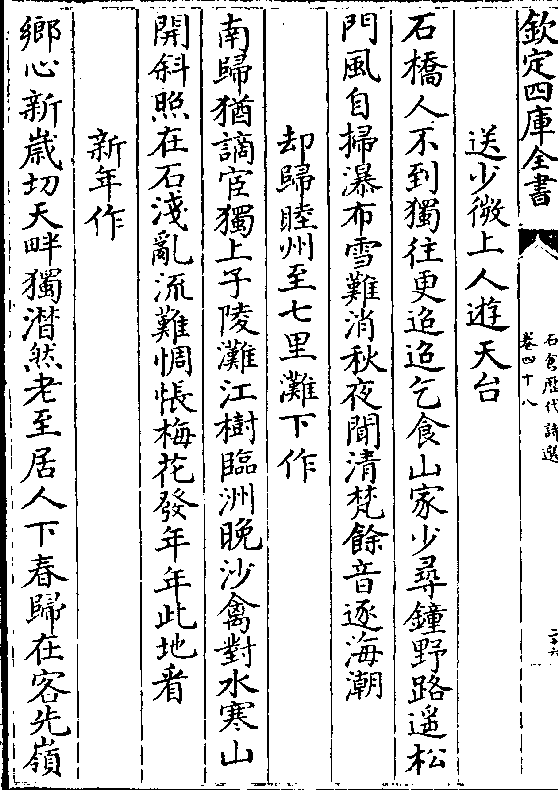 欽定四庫全書
石倉歷代詩選
卷四十八
送少微上人遊天台
石橋人不到獨往更迢迢乞食山家少尋鐘野路遥松
門風自掃瀑布雪難消秋夜聞清梵餘音逐海潮
却歸睦州至七里灘下作
南歸猶謫宦獨上子陵灘江樹臨洲晚沙禽對水寒山
開斜照在石淺亂流難惆悵梅花發年年此地看
新年作
鄉心新歲切天畔獨潸然老至居人下春歸在客先嶺